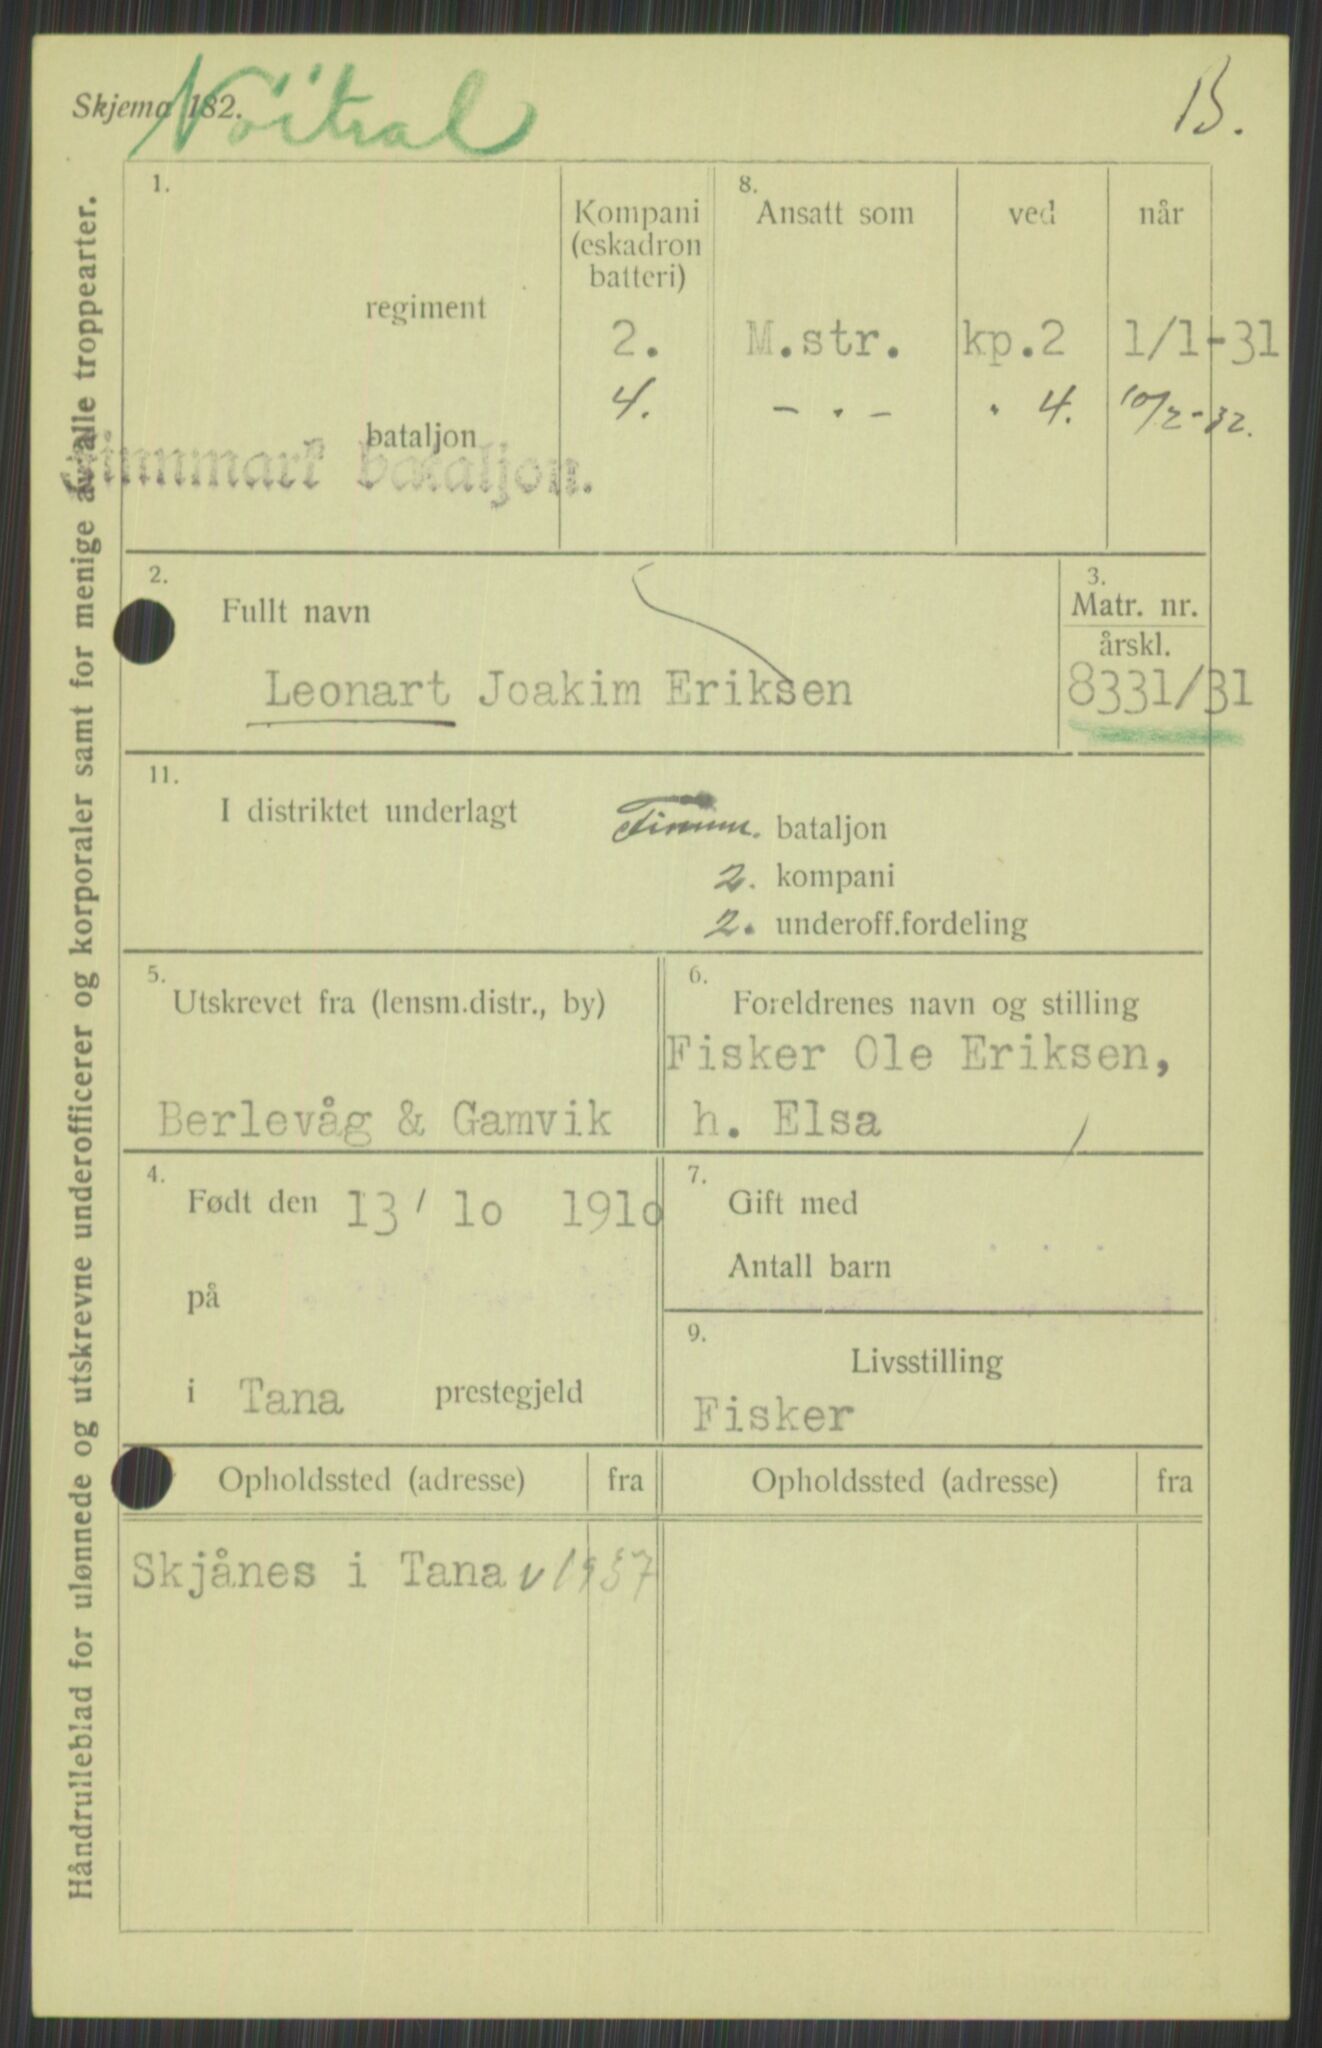 Skjema 182.
Nöitral
B.
Håndrulleblad for ulønnede og utskrevne underofficerer og korporaler samt for menige av alle troppearter.
1.
regiment
bataljon
Finnmark bataljon.
Kompani
(eskadron
batteri)
2.
4.
8.
Ansatt som ved når
M.str. kp.2 1/1-31
- . - " 4. 10/2-32.
2.
Fullt navn
Leonart Joakim Eriksen
3.
Matr. nr.
årskl.
8331/31
11.
I distriktet underlagt
Finnm. bataljon
2. kompani
2. underoff.fordeling
5.
Utskrevet fra (lensm.distr., by)
Berlevåg & Gamvik
6.
Foreldrenes navn og stilling
Fisker Ole Eriksen,
h. Elsa
4.
Født den 13/ 10 1910
på
i Tana prestegjeld
7.
Gift med
Antall barn
9.
Livsstilling
Fisker
Opholdssted (adresse) fra
Opholdssted (adresse) fra
Skjånes i Tana v 1937